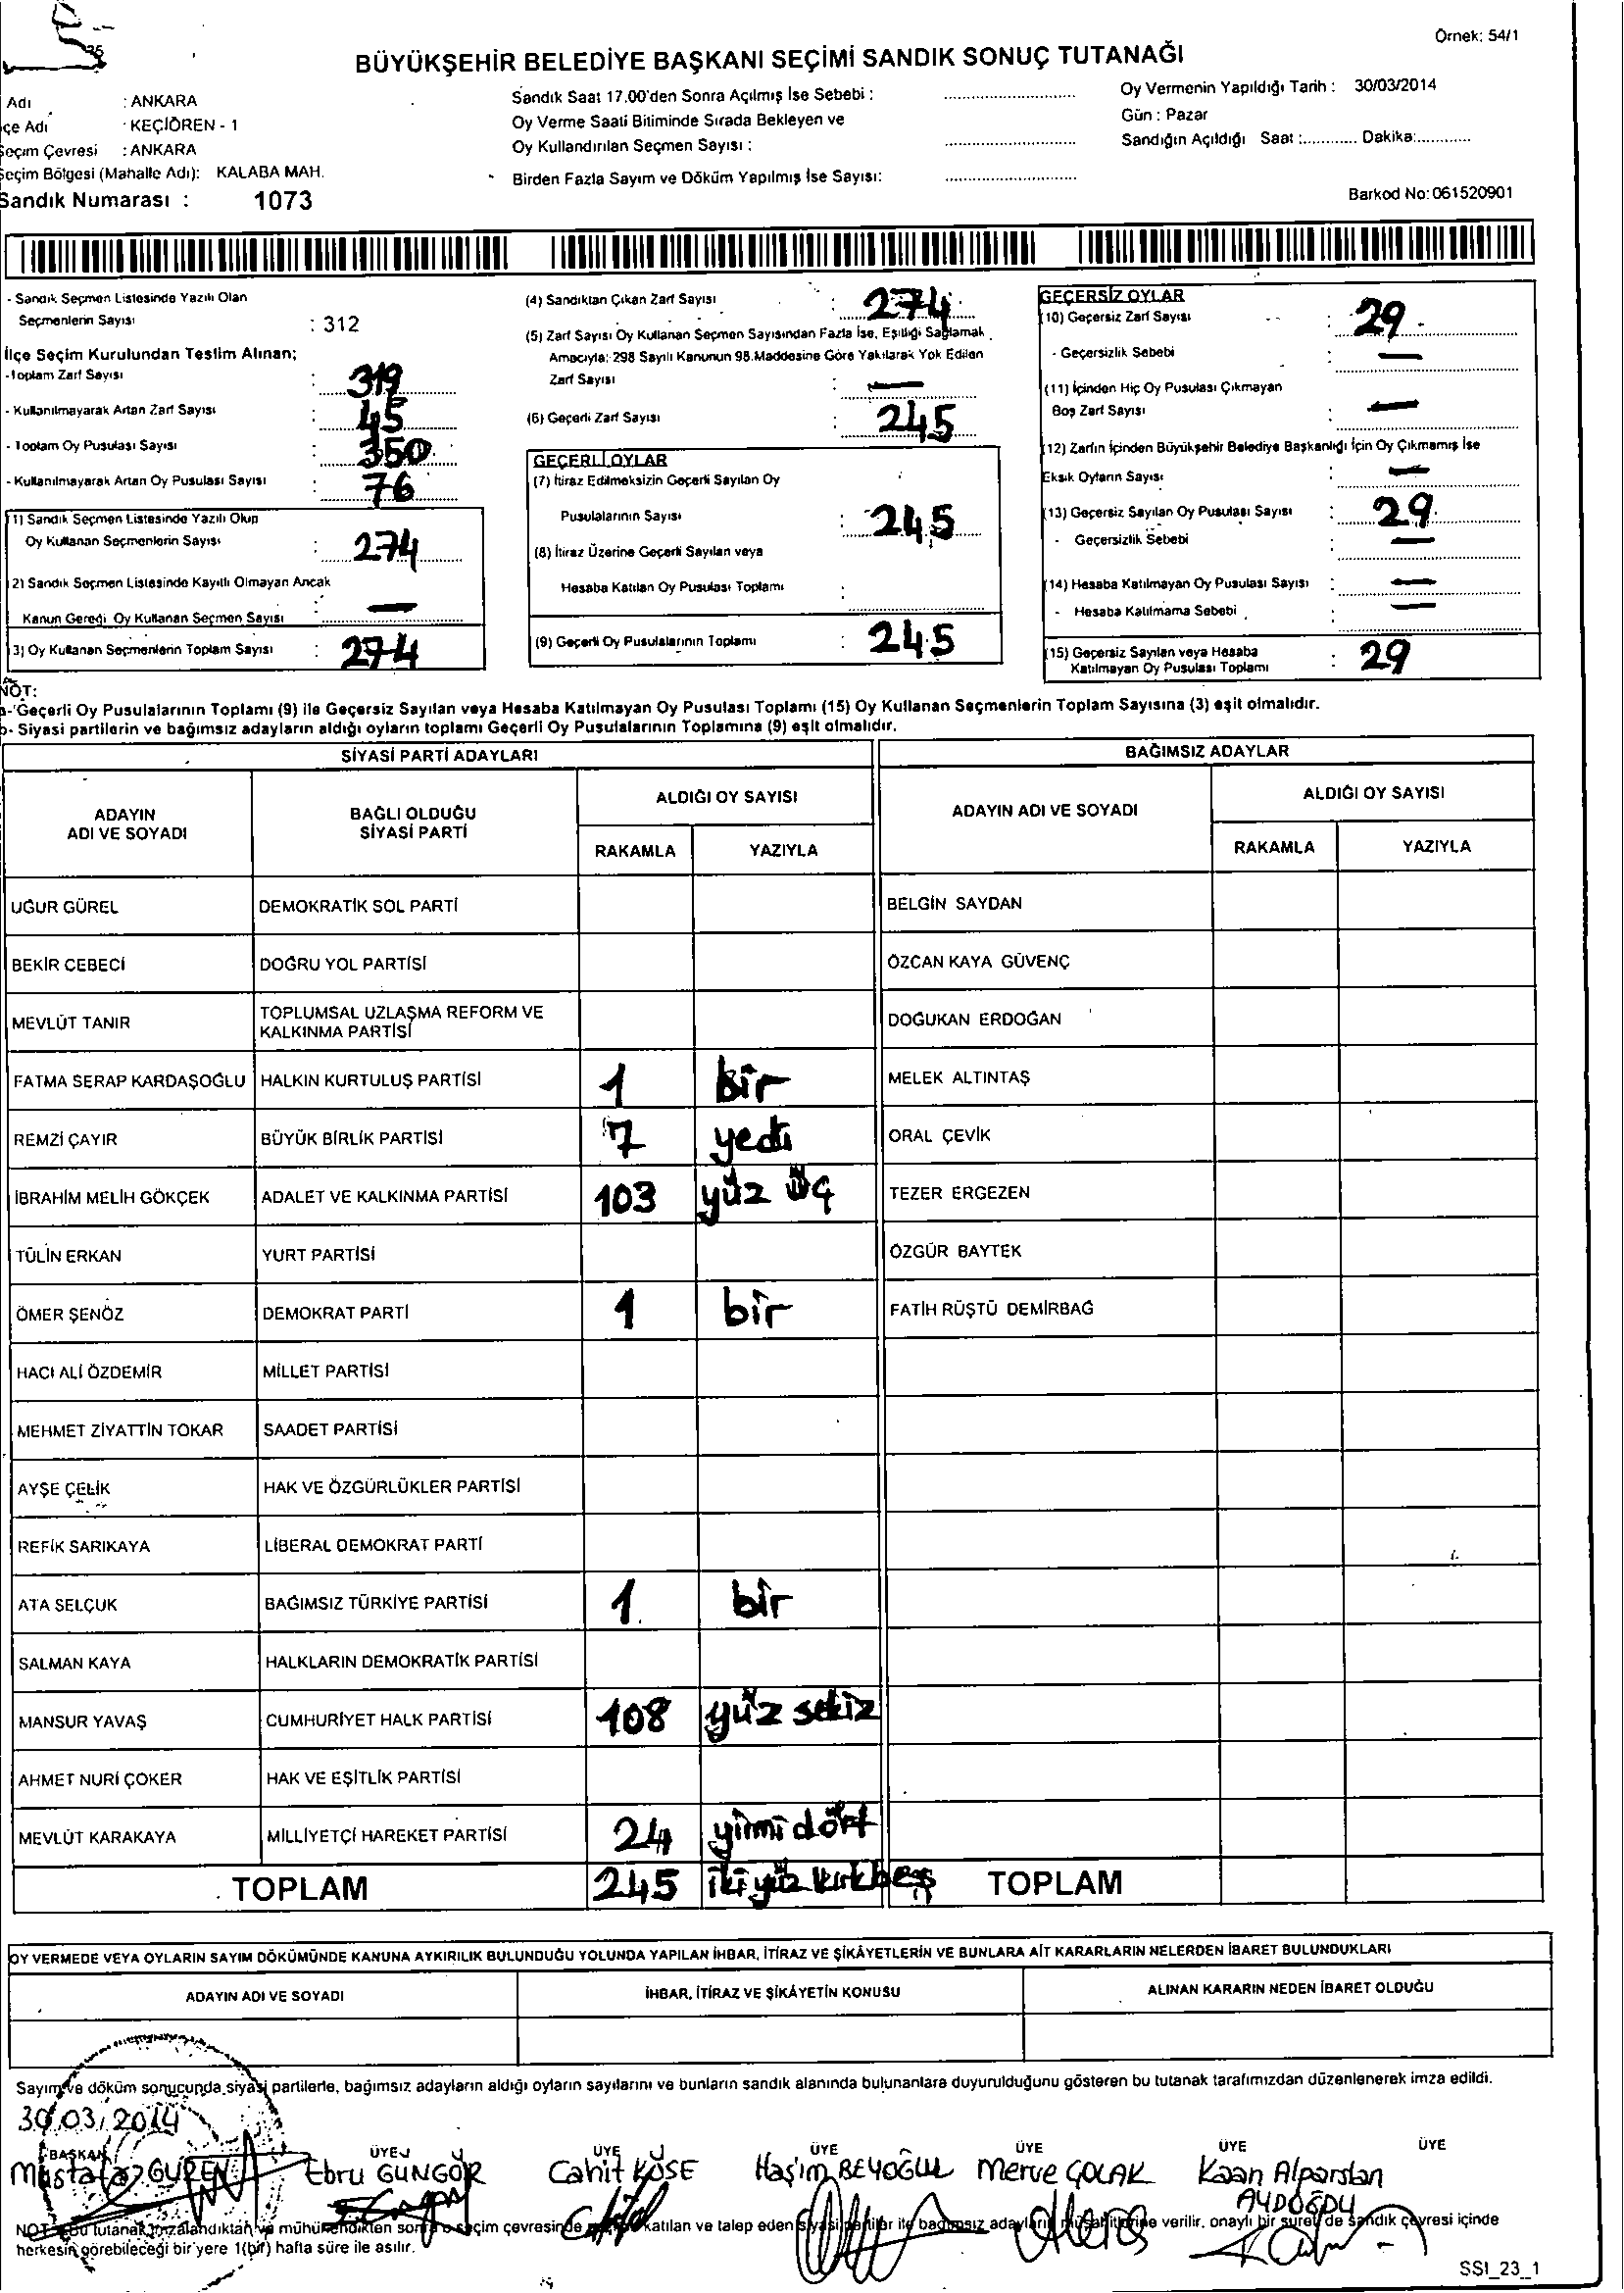 Örnek: 54/1
BÜYÜKŞEHİR BELEDİYE BAŞKANI SEÇİMİ SANDIK SONUÇ TUTANAĞI
Adı : ANKARA
çe Adı : KEÇİÖREN - 1
Seçim Çevresi : ANKARA
Seçim Bölgesi (Mahalle Adı): KALABA MAH.
Sandık Numarası : 1073
Sandık Saat 17.00'den Sonra Açılmış İse Sebebi :
Oy Verme Saati Bitiminde Sırada Bekleyen ve
Oy Kullandırılan Seçmen Sayısı :
Birden Fazla Sayım ve Döküm Yapılmış İse Sayısı:
Oy Vermenin Yapıldığı Tarih : 30/03/2014
Gün : Pazar
Sandığın Açıldığı Saat :............ Dakika:............
Barkod No: 061520901
- Sandık Seçmen Listesinde Yazılı Olan
Seçmenlerin Sayısı : 312
İlçe Seçim Kurulundan Teslim Alınan;
-Toplam Zarf Sayısı : 319
- Kullanılmayarak Artan Zarf Sayısı : 45
- Toplam Oy Pusulası Sayısı : 350
- Kullanılmayarak Artan Oy Pusulası Sayısı : 76
(1) Sandık Seçmen Listesinde Yazılı Olup
Oy Kullanan Seçmenlerin Sayısı : 274
(2) Sandık Seçmen Listesinde Kayıtlı Olmayan Ancak
Kanun Gereği Oy Kullanan Seçmen Sayısı : —
(3) Oy Kullanan Seçmenlerin Toplam Sayısı : 274
(4) Sandıktan Çıkan Zarf Sayısı : 274
(5) Zarf Sayısı Oy Kullanan Seçmen Sayısından Fazla İse, Eşitliği Sağlamak
Amacıyla; 298 Sayılı Kanunun 98.Maddesine Göre Yakılarak Yok Edilen
Zarf Sayısı : —
(6) Geçerli Zarf Sayısı : 245
GEÇERLİ OYLAR
(7) İtiraz Edilmeksizin Geçerli Sayılan Oy
Pusulalarının Sayısı : 245
(8) İtiraz Üzerine Geçerli Sayılan veya
Hesaba Katılan Oy Pusulası Toplamı :
(9) Geçerli Oy Pusulalarının Toplamı : 245
GEÇERSİZ OYLAR
(10) Geçersiz Zarf Sayısı : 29
- Geçersizlik Sebebi : —
(11) İçinden Hiç Oy Pusulası Çıkmayan
Boş Zarf Sayısı : —
(12) Zarfın İçinden Büyükşehir Belediye Başkanlığı İçin Oy Çıkmamış İse
Eksik Oyların Sayısı : —
(13) Geçersiz Sayılan Oy Pusulası Sayısı : 29
- Geçersizlik Sebebi : —
(14) Hesaba Katılmayan Oy Pusulası Sayısı : —
- Hesaba Katılmama Sebebi : —
(15) Geçersiz Sayılan veya Hesaba
Katılmayan Oy Pusulası Toplamı : 29
NOT:
a-'Geçerli Oy Pusulalarının Toplamı (9) ile Geçersiz Sayılan veya Hesaba Katılmayan Oy Pusulası Toplamı (15) Oy Kullanan Seçmenlerin Toplam Sayısına (3) eşit olmalıdır.
b- Siyasi partilerin ve bağımsız adayların aldığı oyların toplamı Geçerli Oy Pusulalarının Toplamına (9) eşit olmalıdır.
SİYASİ PARTİ ADAYLARI
ADAYIN ADI VE SOYADI
BAĞLI OLDUĞU SİYASİ PARTİ
ALDIĞI OY SAYISI
RAKAMLA YAZIYLA
UĞUR GÜREL DEMOKRATİK SOL PARTİ
BEKİR CEBECİ DOĞRU YOL PARTİSİ
MEVLÜT TANIR TOPLUMSAL UZLAŞMA REFORM VE
KALKINMA PARTİSİ
FATMA SERAP KARDAŞOĞLU HALKIN KURTULUŞ PARTİSİ 1 bir
REMZİ ÇAYIR BÜYÜK BİRLİK PARTİSİ 7 yedi
İBRAHİM MELİH GÖKÇEK ADALET VE KALKINMA PARTİSİ 103 yüz üç
TÜLİN ERKAN YURT PARTİSİ
ÖMER ŞENÖZ DEMOKRAT PARTİ 1 bir
HACI ALİ ÖZDEMİR MİLLET PARTİSİ
MEHMET ZİYATTİN TOKAR SAADET PARTİSİ
AYŞE ÇELİK HAK VE ÖZGÜRLÜKLER PARTİSİ
REFİK SARIKAYA LİBERAL DEMOKRAT PARTİ
ATA SELÇUK BAĞIMSIZ TÜRKİYE PARTİSİ 1 bir
SALMAN KAYA HALKLARIN DEMOKRATİK PARTİSİ
MANSUR YAVAŞ CUMHURİYET HALK PARTİSİ 108 yüz sekiz
AHMET NURİ ÇOKER HAK VE EŞİTLİK PARTİSİ
MEVLÜT KARAKAYA MİLLİYETÇİ HAREKET PARTİSİ 24 yirmi dört
TOPLAM 245 iki yüz kırk beş
BAĞIMSIZ ADAYLAR
ADAYIN ADI VE SOYADI
ALDIĞI OY SAYISI
RAKAMLA YAZIYLA
BELGİN SAYDAN
ÖZCAN KAYA GÜVENÇ
DOĞUKAN ERDOĞAN
MELEK ALTINTAŞ
ORAL ÇEVİK
TEZER ERGEZEN
ÖZGÜR BAYTEK
FATİH RÜŞTÜ DEMİRBAĞ
TOPLAM
OY VERMEDE VEYA OYLARIN SAYIM DÖKÜMÜNDE KANUNA AYKIRILIK BULUNDUĞU YOLUNDA YAPILAN İHBAR, İTİRAZ VE ŞİKÂYETLERİN VE BUNLARA AİT KARARLARIN NELERDEN İBARET BULUNDUKLARI
ADAYIN ADI VE SOYADI
İHBAR, İTİRAZ VE ŞİKÂYETİN KONUSU
ALINAN KARARIN NEDEN İBARET OLDUĞU
Sayım ve döküm sonucunda siyasi partilerle, bağımsız adayların aldığı oyların sayılarını ve bunların sandık alanında bulunanlara duyurulduğunu gösteren bu tutanak tarafımızdan düzenlenerek imza edildi.
30.03.2014
BAŞKAN ÜYE ÜYE ÜYE ÜYE ÜYE ÜYE
Mustafa GÜREN Ebru GÜNGÖR Cahit KÖSE Haşim BEYOĞLU Merve ÇOLAK Kaan Alparslan
AYDOĞDU
NOT : Bu tutanak imzalandıktan ve mühürlendikten sonra o seçim çevresinde katılan ve talep eden siyasi partiler ile bağımsız adayların müşahitlerine verilir, onaylı bir sureti de sandık çevresi içinde
herkesin görebileceği bir yere 1(bir) hafta süre ile asılır.
SSI_23_1